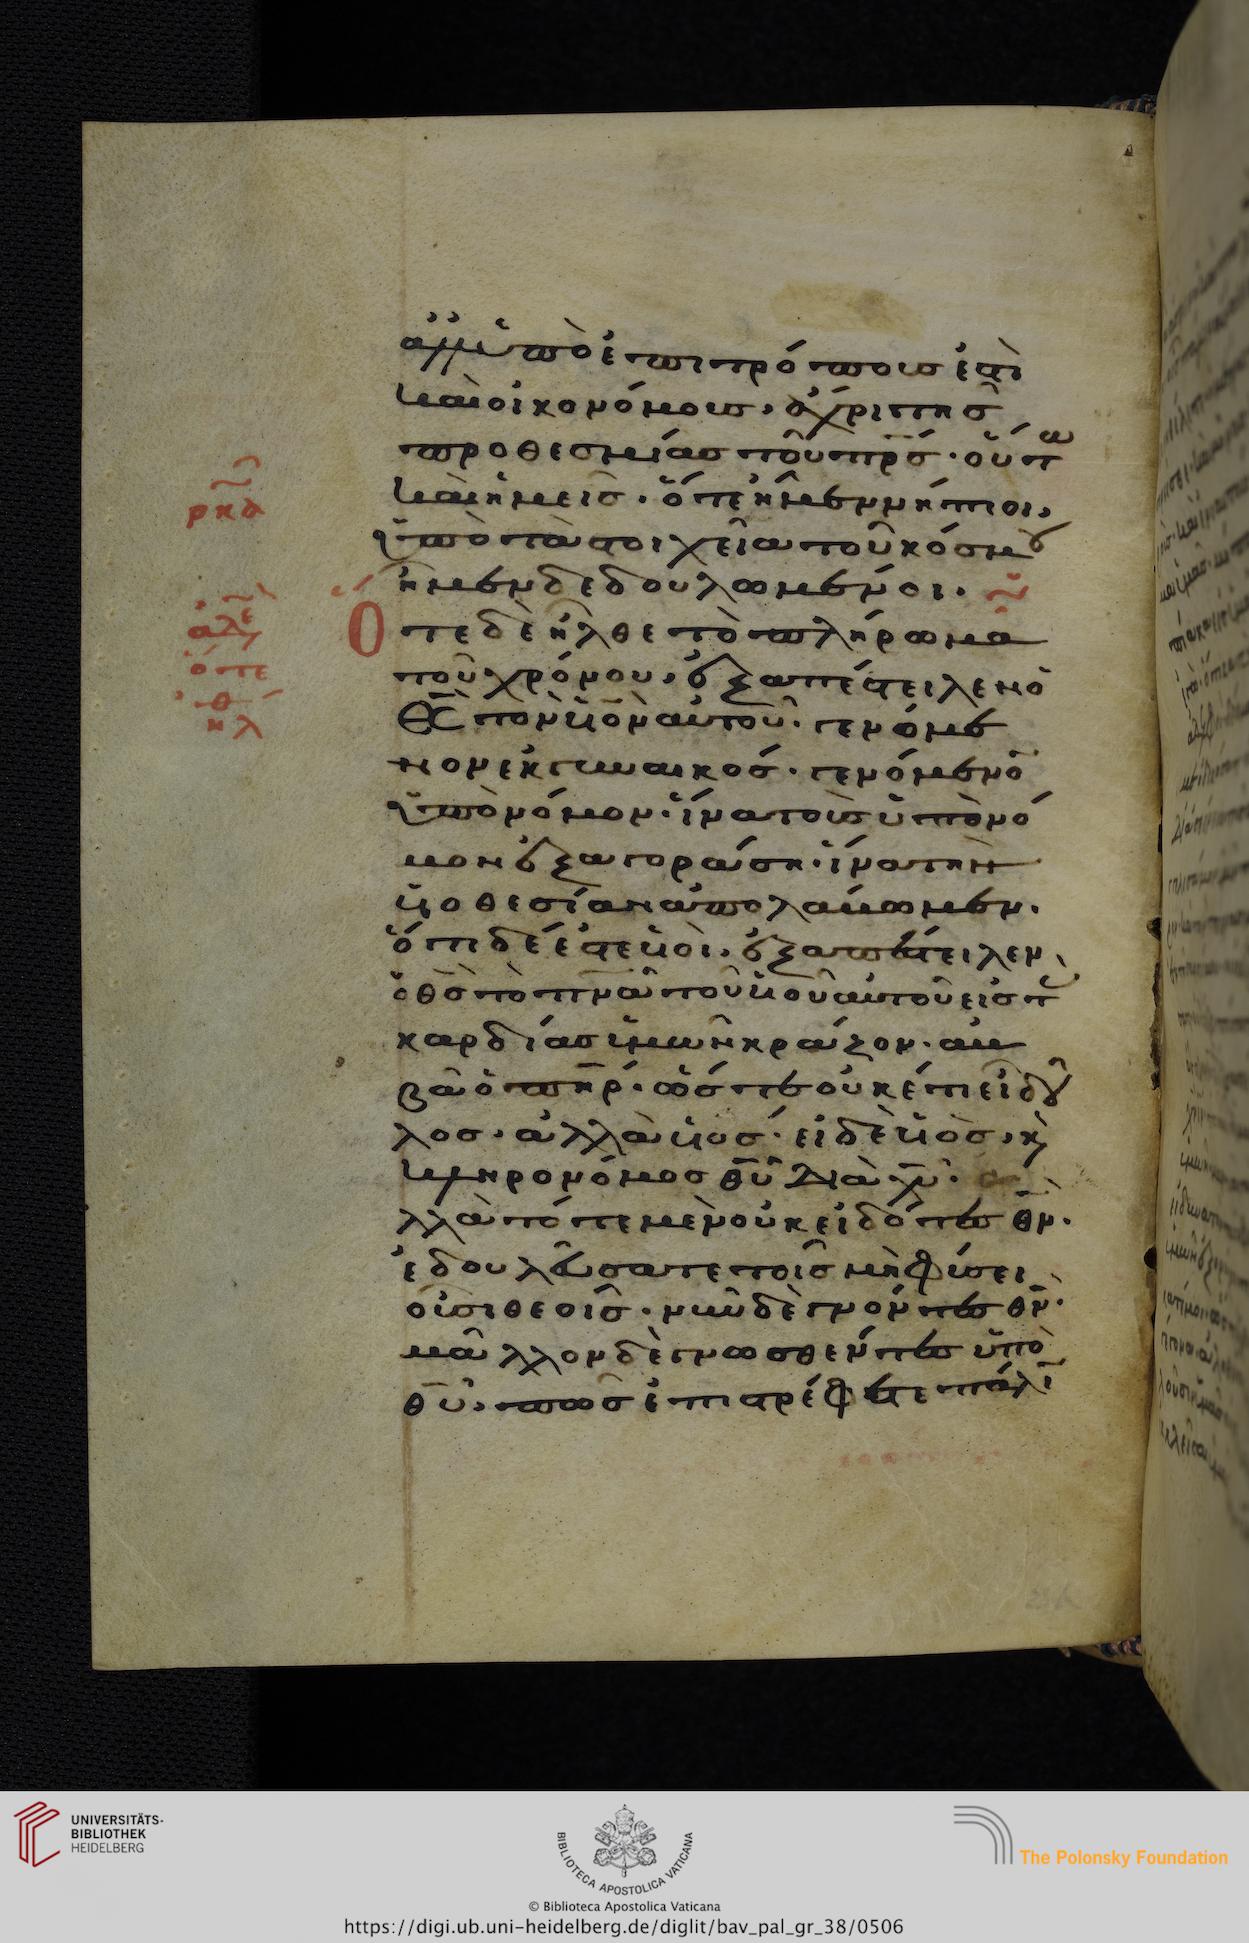 ἀλλὰ ὑπὸ ἐπιτρόπους ἐστὶ
καὶ οἰκονόμους, ἄχρι τῆς
προθεσμίας τοῦ πρς· οὕτω
καὶ ἡμεῖς· ὅτε ἦμεν νήπιοι,
ὑπὸ τὰ στοιχεῖα τοῦ κόσμου
ἦμεν δεδουλωμένοι·
Ὅτε δὲ ἦλθε τὸ πλήρωμα
τοῦ χρόνου, ἐξαπέστειλεν ὁ
θς τὸν υἱὸν αὐτοῦ· γενόμε
νον ἐκ γυναικός· γενόμενον
ὑπὸ νόμον· ἵνα τοὺς ὑπὸ νό
μον ἐξαγοράσῃ· ἵνα τὴν
υἱοθεσίαν ἀπολάβωμεν·
ὅτι δέ ἐστε υἱοὶ, ἐξαπέστειλεν
ὁ θς τὸ πνα τοῦ υἱοῦ αὐτοῦ εἰς τὰς
καρδίας ὑμῶν κράζον· ἀβ
βᾶ ὁ πηρ· ὥστε οὐκέτι εἶ δοῦ
λος· ἀλλὰ υἱός· εἰ δὲ υἱὸς, καὶ
κληρονόμος θυ διὰ χυ· ἀ
λλὰ τότε μὲν οὐκ εἰδότες θν·
ἐδουλεύσατε τοῖς μὴ φύσει
οὖσι θεοῖς· νῦν δὲ γνόντες θν·
μᾶλλον δὲ γνωσθέντες ὑπὸ
θυ, πῶς ἐπιστρέφετε πάλιν
ρκδ
ὅτε
ἦλθε
UNIVERSITÄTS-
BIBLIOTHEK
HEIDELBERG
BIBLIOTECA APOSTOLICA VATICANA
The Polonsky Foundation
© Biblioteca Apostolica Vaticana
https://digi.ub.uni-heidelberg.de/diglit/bav_pal_gr_38/0506